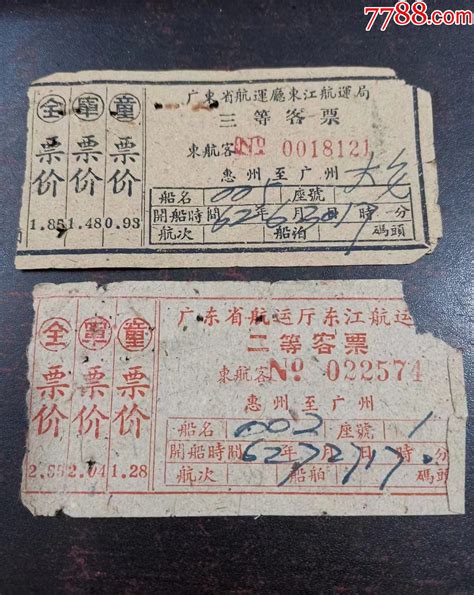 7788.com
全 單 童
票价 票价 票价
1.85 1.48 0.93
广東省航運廳東江航運局
三等客票
東航客 No 0018121
惠州至广州
船名 005 座號
開船時間 62年6月30日17時 分
航次 船泊 碼頭
全 單 童
票价 票价 票价
2.55 2.04 1.28
广东省航运厅东江航运
二等客票
東航客 No 022574
惠州至广州
船名 002 座號 1
開船時間 62年 月 日17時 分
航次 船舶 碼頭